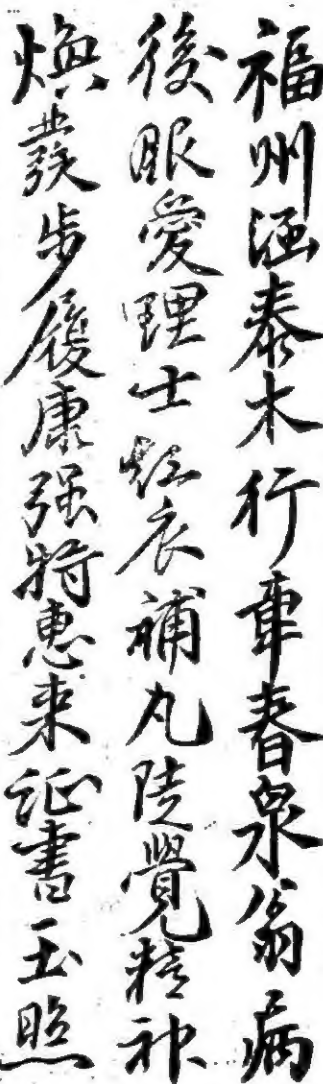 福州涵泰木行章春泉翁病
後眼愛理士紅衣補丸陡覺精神
煥發步履康强特惠来証書玉照